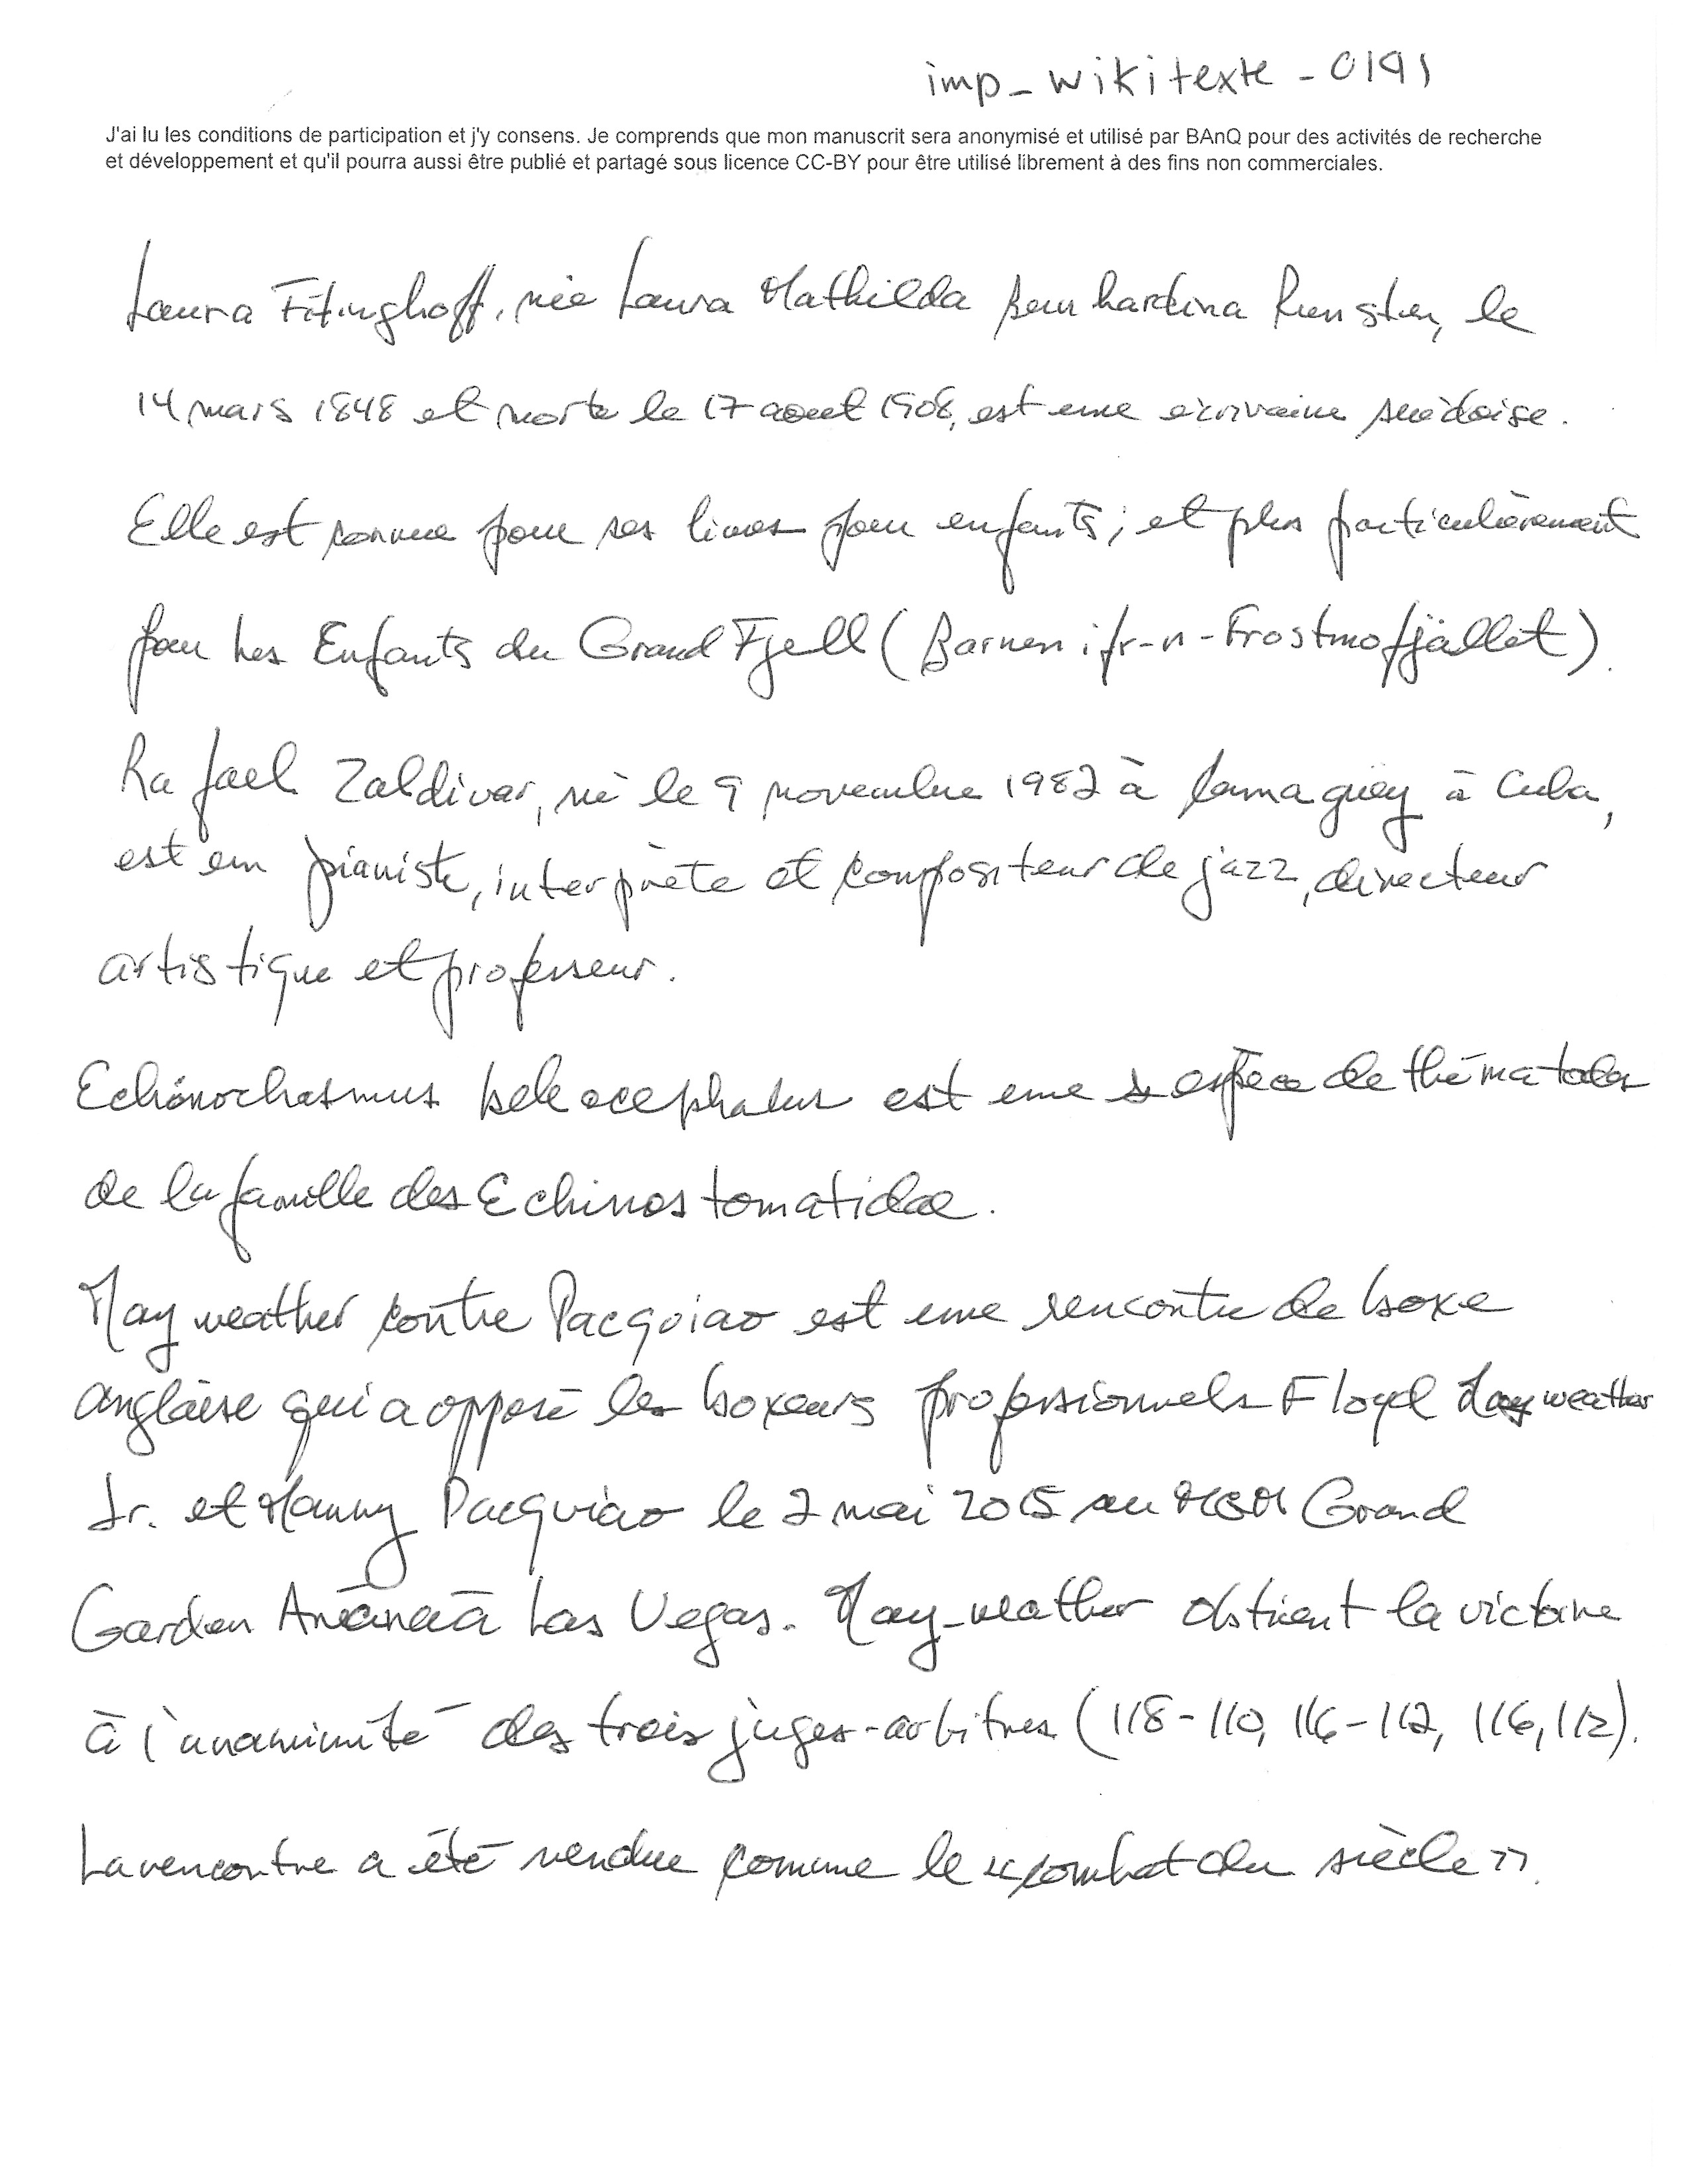 imp_wikitexte-0191
J'ai lu les conditions de participation et j'y consens. Je comprends que mon manuscrit sera anonymisé et utilisé par BAnQ pour des activités de recherche
et développement et qu'il pourra aussi être publié et partagé sous licence CC-BY pour être utilisé librement à des fins non commerciales.
Laura Fitinghoff, née Laura Mathilda Bernhardina Runsten, le
14 mars 1848 et morte le 17 aout 1908, est une écrivaine suédoise.
Elle est connue pour ses livres pour enfants, et plus particulièrement
pour Les Enfants du Grand Fjell (Barnen ifr-n-Frostmofjället).
Rafael Zaldivar, né le 9 novembre 1982 à Camagüey à Cuba,
est un pianiste, interprète et compositeur de jazz, directeur
artistique et professeur.
Echinochasmus beleocephalus est une espèce de thématodes
de la famille des Echinostomatidae.
Mayweather contre Pacquiao est une rencontre de boxe
anglaise qui a opposé les boxeurs professionnels Floyd Mayweather
Jr. et Manny Pacquiao le 2 mai 2015 au MGM Grand
Garden à Las Vegas. May-weather obtient la victoire
à l'unanimité des trois juges-arbitres (118-110, 116-112, 116,112).
La rencontre a été vendue comme le «combat du siècle».